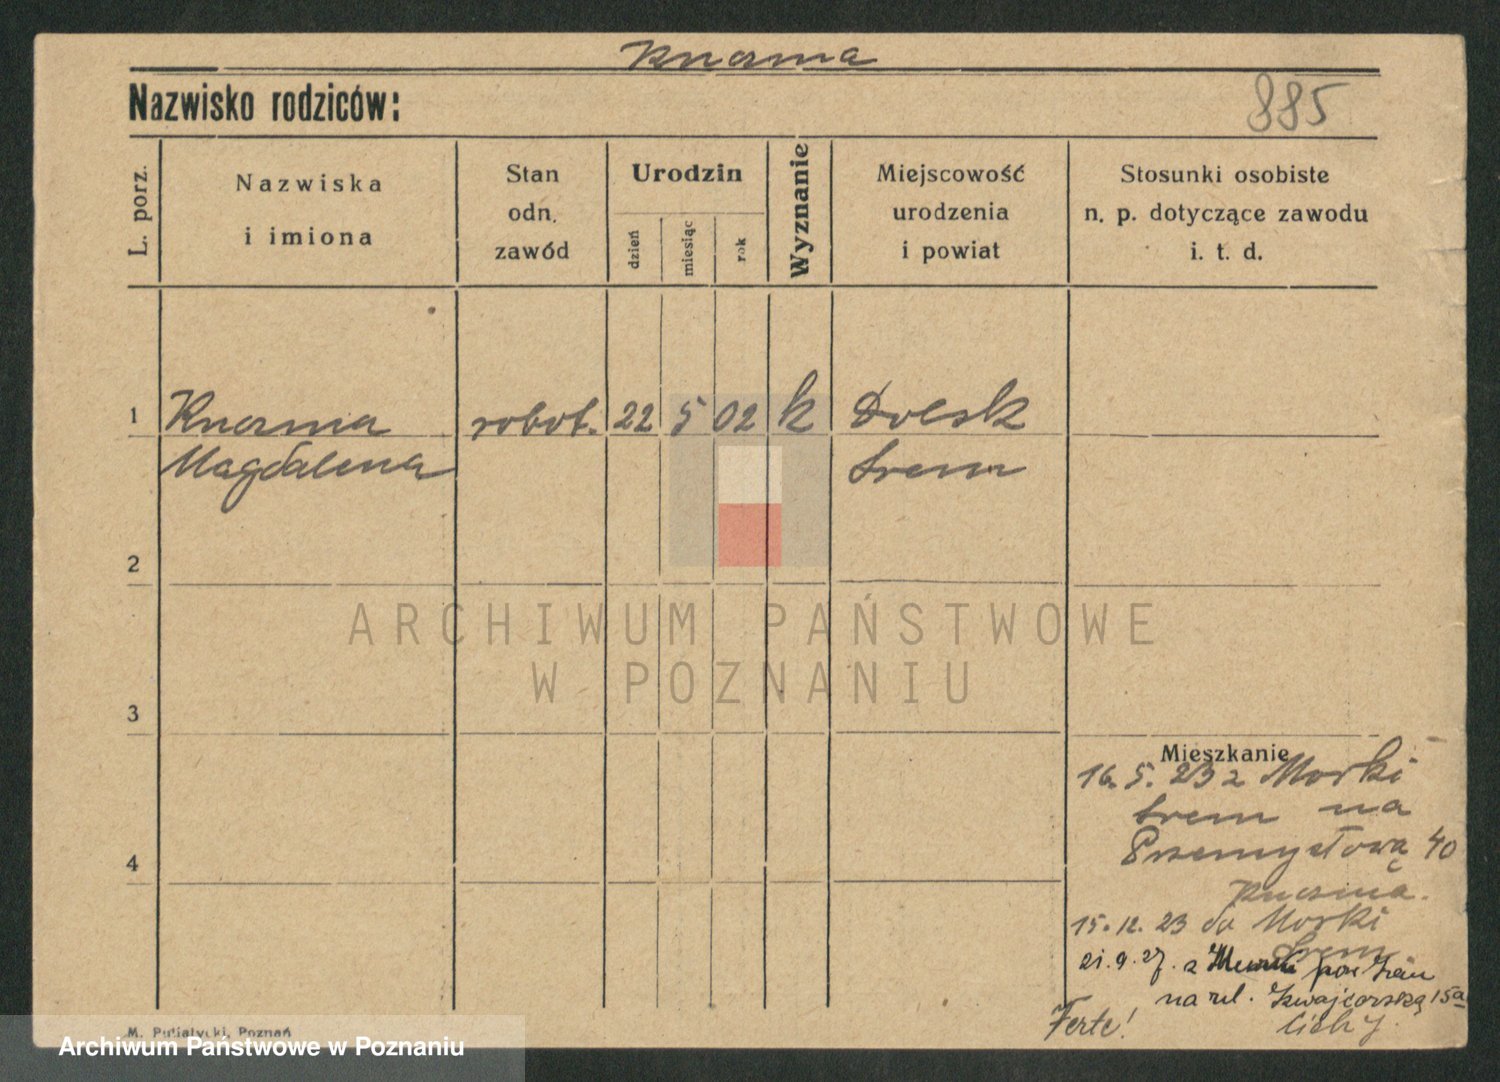 Knasma
Nazwisko rodziców:
885
L. porz.
Nazwiska
i imiona
Stan
odn.
zawód
Urodzin
dzień
miesiąc
rok
Wyznanie
Miejscowość
urodzenia
i powiat
Stosunki osobiste
n. p. dotyczące zawodu
i. t. d.
1 robot. 22 5 02 k Dolsk
Magdalena Srem
2
ARCHIWUM PAŃSTWOWE
W POZNANIU
3
4
Mieszkanie
16. 5. 23 z Morki
Srem na
Przemysłową 40
15. 12. 23 do Morki
Srem
21. 9. 27. z pow Śrem
na ul. Szwajcarską 15a
Cichy.
Ferte!
M. Putiatycki, Poznań
Archiwum Państwowe w Poznaniu